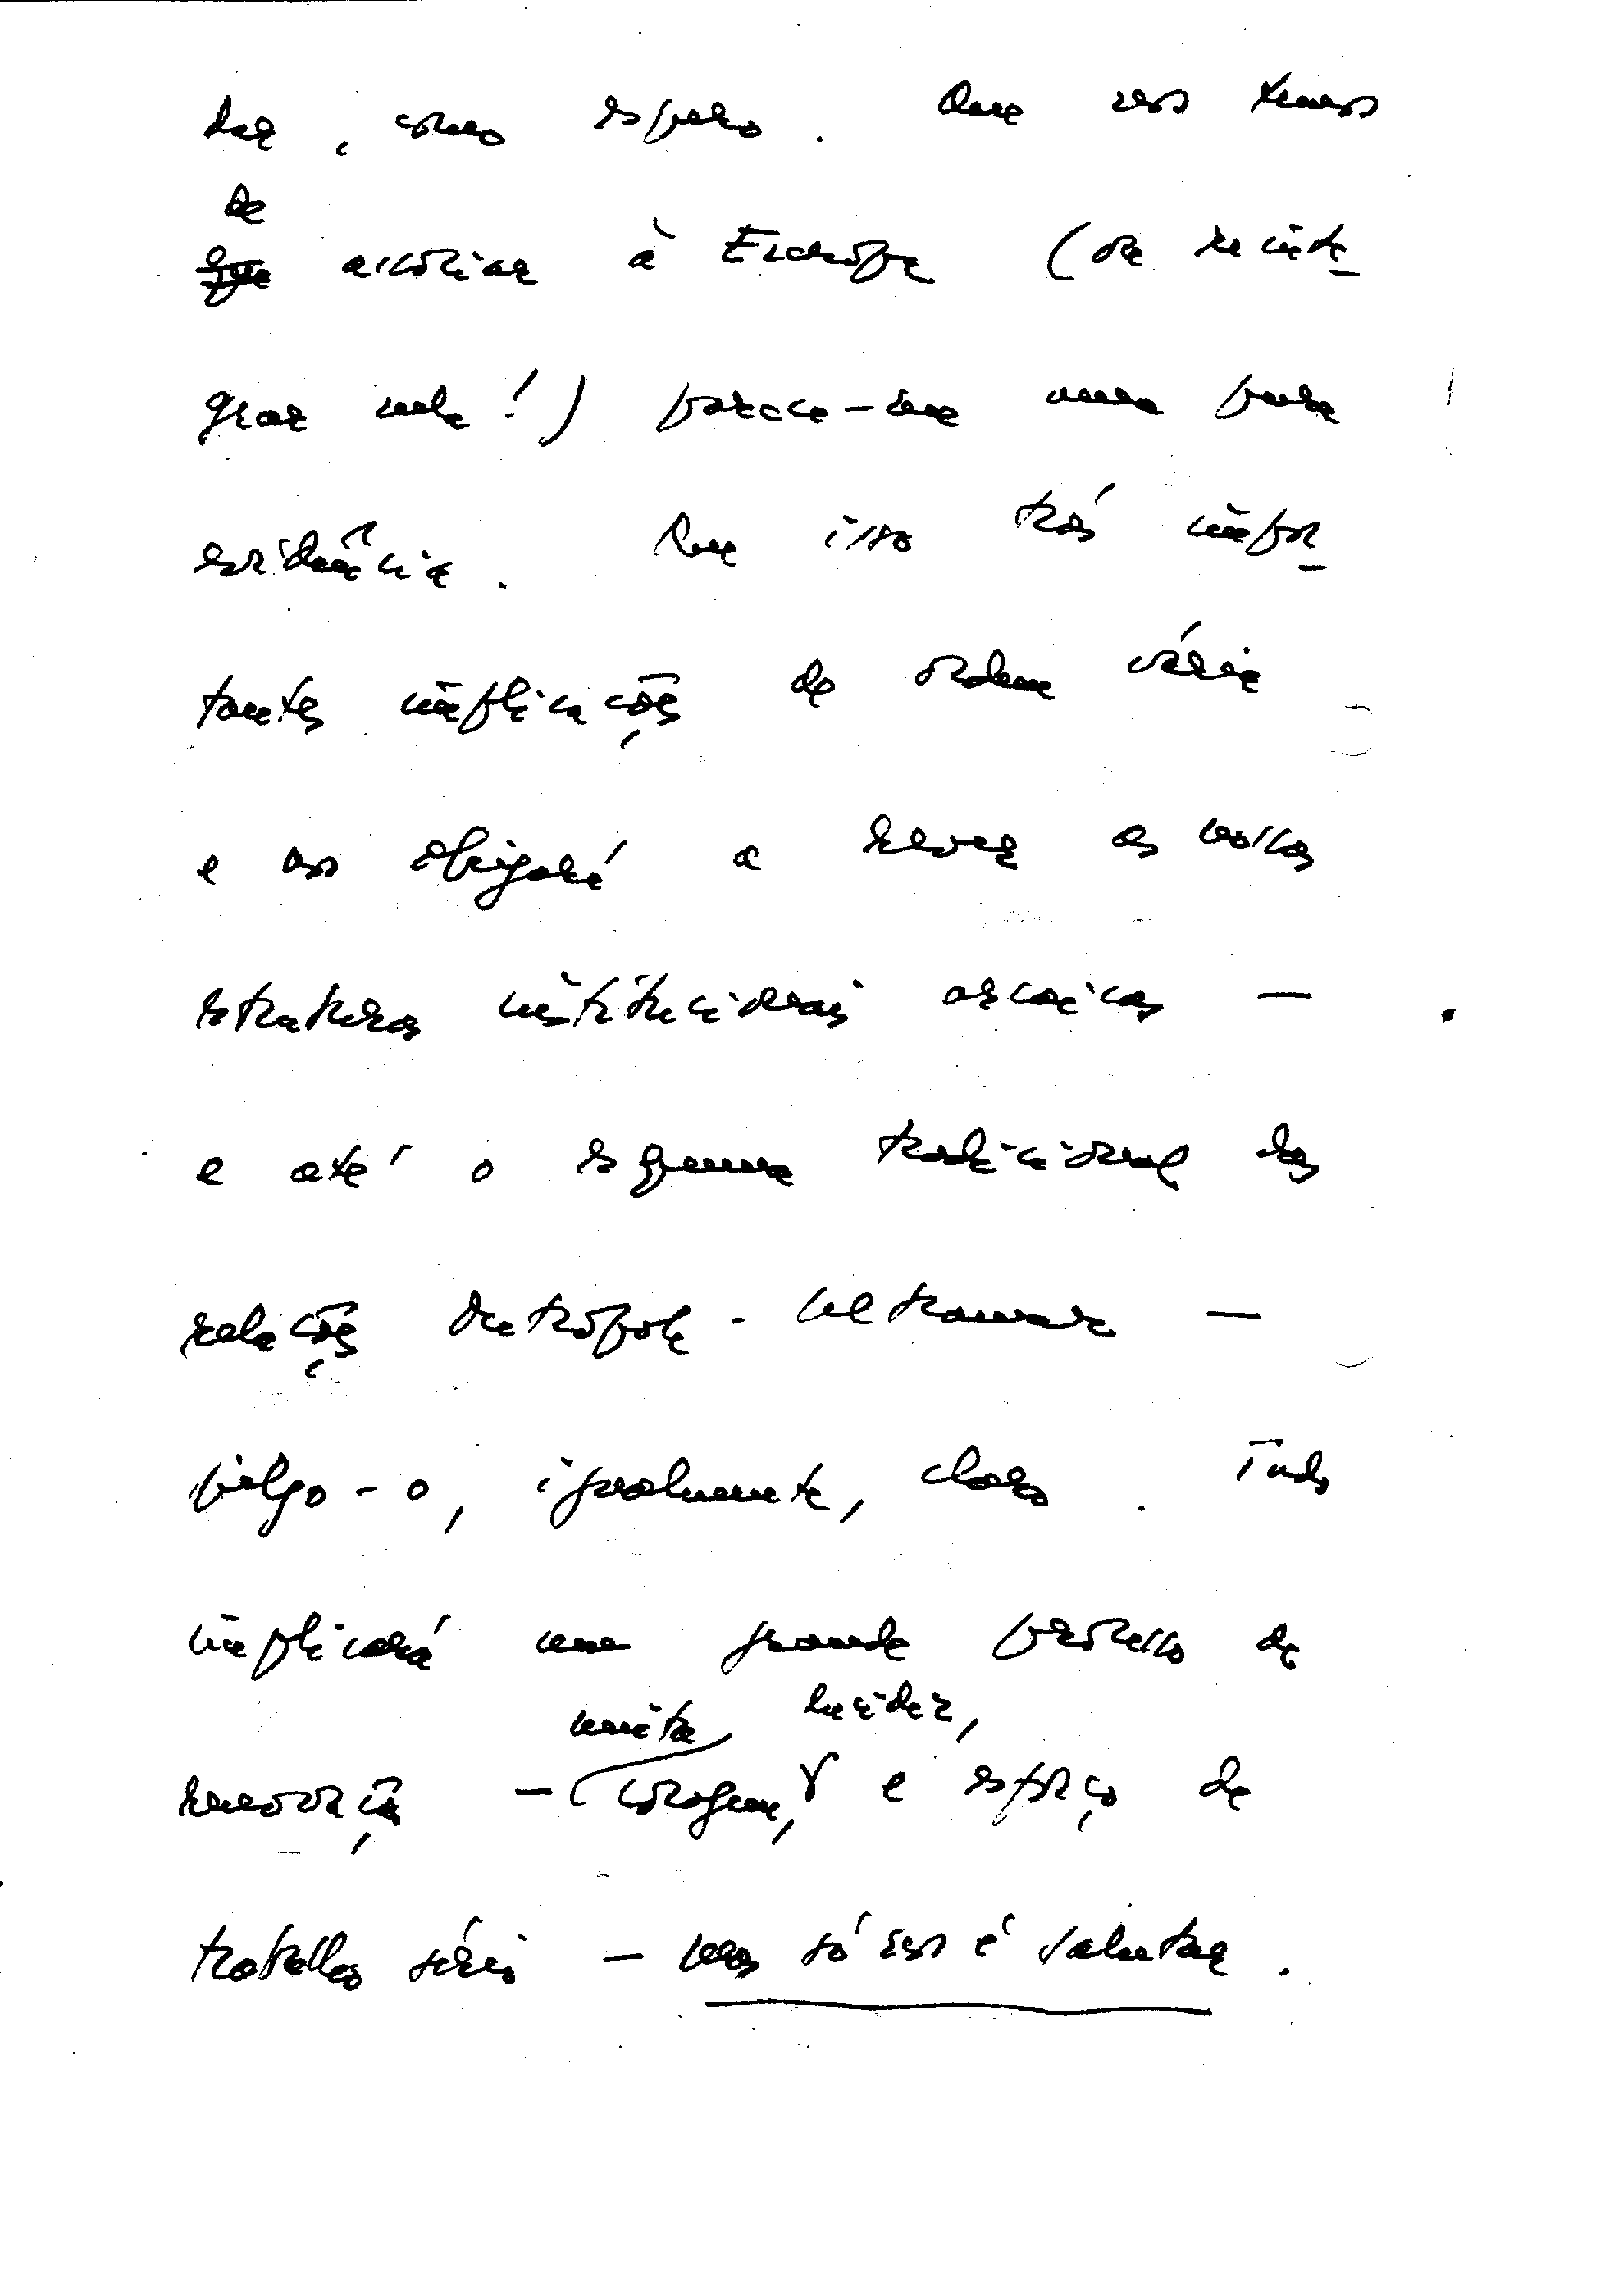 dar, como espero. Que nos temos
de
que associar à Europa (ou reinte-
grar nela!) parece-me uma pura
evidência. Que isso trás impor-
tantes implicações de ordem vária
e nos obrigará a rever as nossas
estruturas institucionais arcaicas —
e até o esquema tradicional das
relações Metrópole - Ultramar —
julgo-o, igualmente, claro. Tudo
implicará um grande processo de
muita lucidez,
renovação — coragem, e esforço de
trabalho sério — mas só isso é salutar.